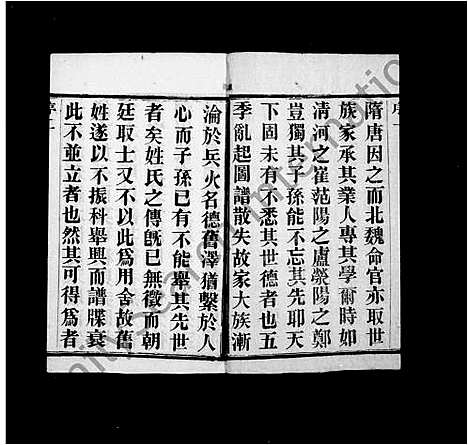 序一
隋唐因之而北魏命官亦取世
族家承其業人專其學爾時如
清河之崔范陽之盧滎陽之鄭
豈獨其子孫能不忘其先耶天
下固未有不悉其世德者也五
季亂起圖譜散失故家大族漸
淪於兵火名德舊澤猶繫於人
心而子孫已有不能舉其先世
者矣姓氏之傳旣已無徵而朝
廷取士又不以此爲用舍故舊
姓遂以不振科舉興而譜牒衰
此不並立者也然其可得爲者